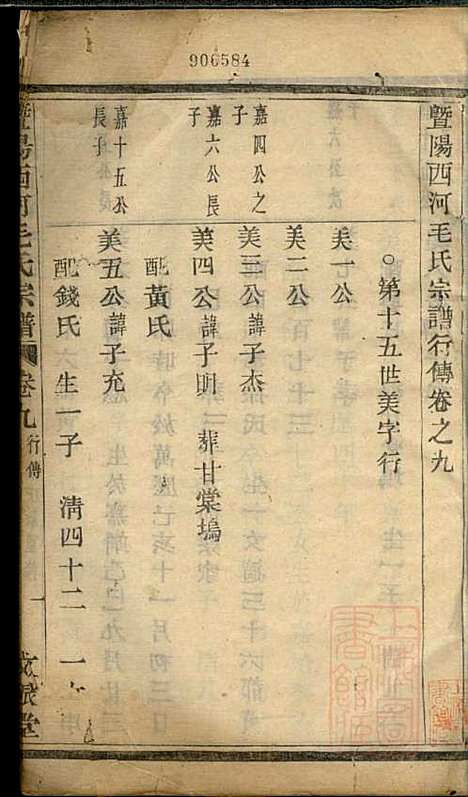 906584
暨陽西河毛氏宗譜行傳卷之九
○第十五世美字行
美一公
美二公
嘉四公之子
美三公諱子杰
嘉六公長子
美四公諱子明 葬甘棠塢
配黃氏
嘉十五公長子
美五公諱子充
配錢氏 生一子 淸四十二
暨陽西河毛氏宗譜 卷九 行傳 一